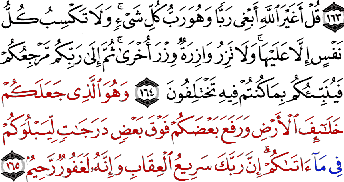 ١٦٣ قُلْ أَغَيْرَ ٱللَّهِ أَبْغِى رَبًّا وَهُوَ رَبُّ كُلِّ شَىْءٍ ۚ وَلَا تَكْسِبُ كُلُّ
نَفْسٍ إِلَّا عَلَيْهَا ۚ وَلَا تَزِرُ وَازِرَةٌ وِزْرَ أُخْرَىٰ ۚ ثُمَّ إِلَىٰ رَبِّكُم مَّرْجِعُكُمْ
فَيُنَبِّئُكُم بِمَا كُنتُمْ فِيهِ تَخْتَلِفُونَ ١٦٤ وَهُوَ ٱلَّذِى جَعَلَكُمْ
خَلَـٰٓئِفَ ٱلْأَرْضِ وَرَفَعَ بَعْضَكُمْ فَوْقَ بَعْضٍ دَرَجَـٰتٍ لِّيَبْلُوَكُمْ
فِى مَآ ءَاتَىٰكُمْ ۗ إِنَّ رَبَّكَ سَرِيعُ ٱلْعِقَابِ وَإِنَّهُۥ لَغَفُورٌ رَّحِيمٌۢ ١٦٥